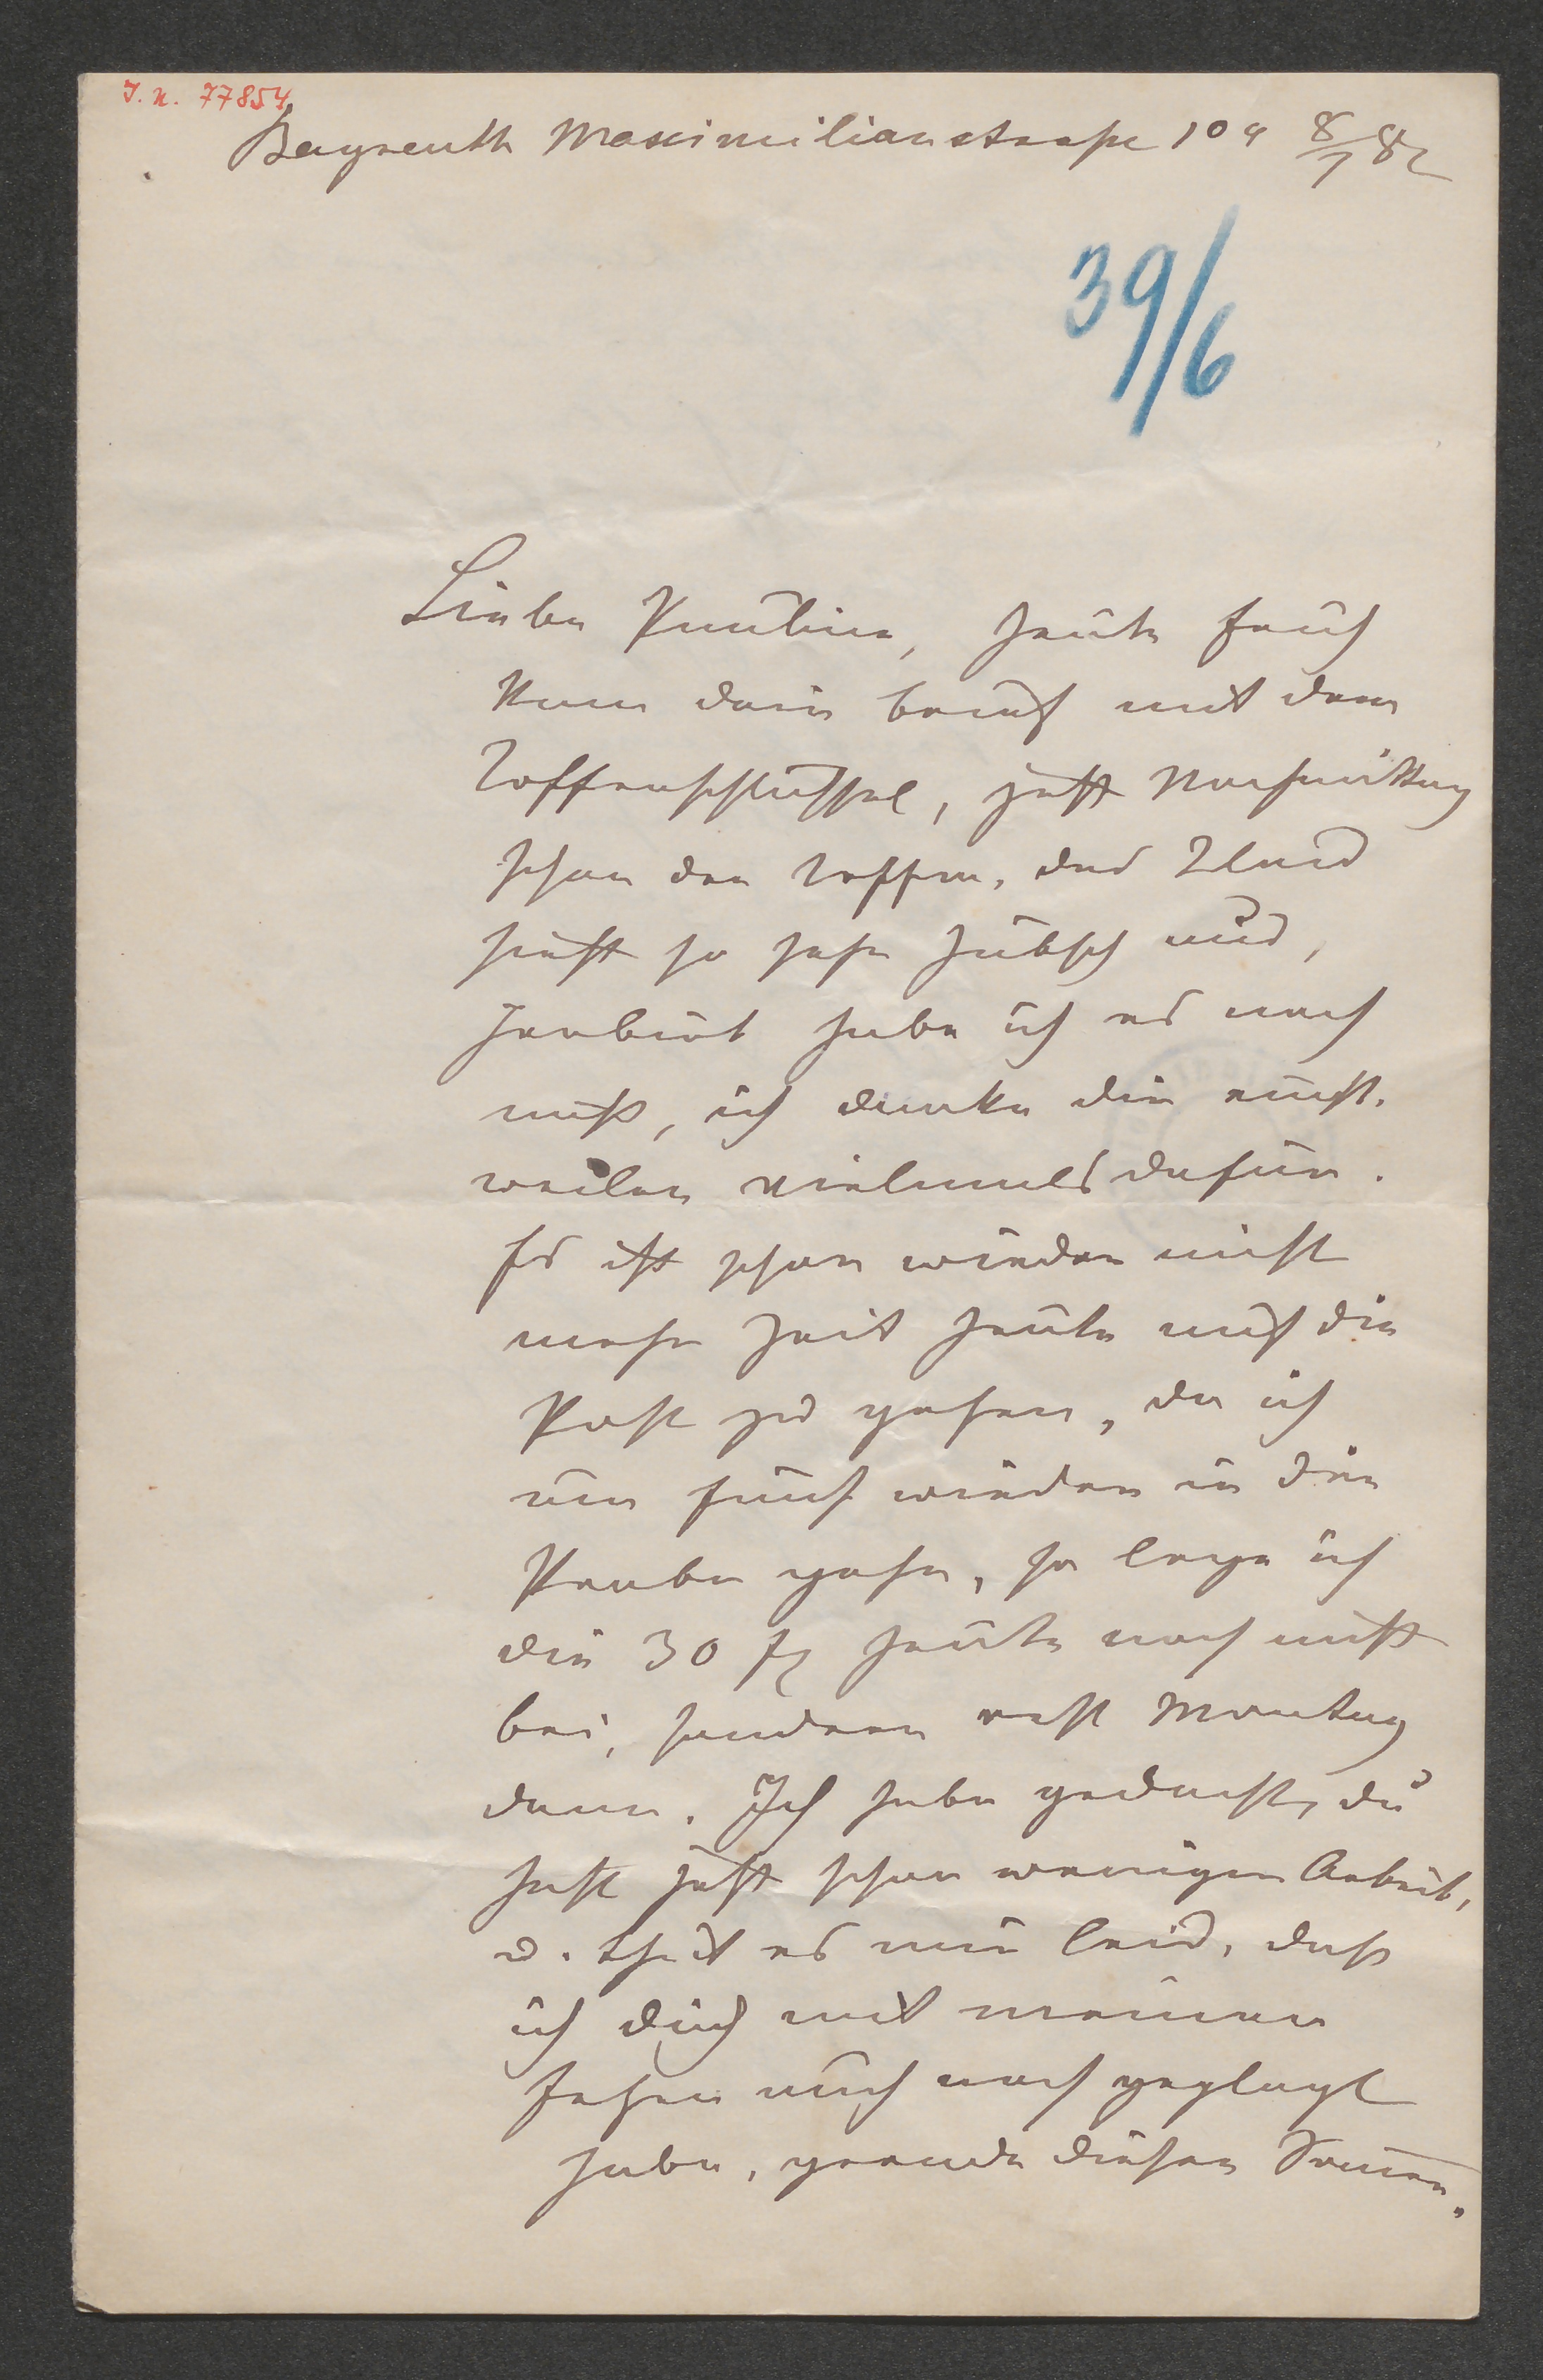 I. N. 77854
Bayreuth Maximilianstraße 109 8/7 82
39/6
Liebe Pauline, heute früh
kam dein Brief mit dem
Kofferschlüssel, jetzt Nachmittag
schon der Koffer, das Kleid
sieht so sehr hübsch aus,
probirt habe ich es noch
nicht, ich danke dir einst-
weilen vielmals dafür.
Es ist schon wieder nicht
mehr Zeit heute auf die
Post zu gehen, da ich
um fünf wieder in die
Probe gehe, so lege ich
die 30 heute noch nicht
bei, sondern erst Montag
dann. Ich habe gedacht, du
hast jetzt schon weniger Arbeit,
u. thut es mir leid, daß
ich dich mit meinen
auch noch geplagt
habe, gerade diesen Sommer,